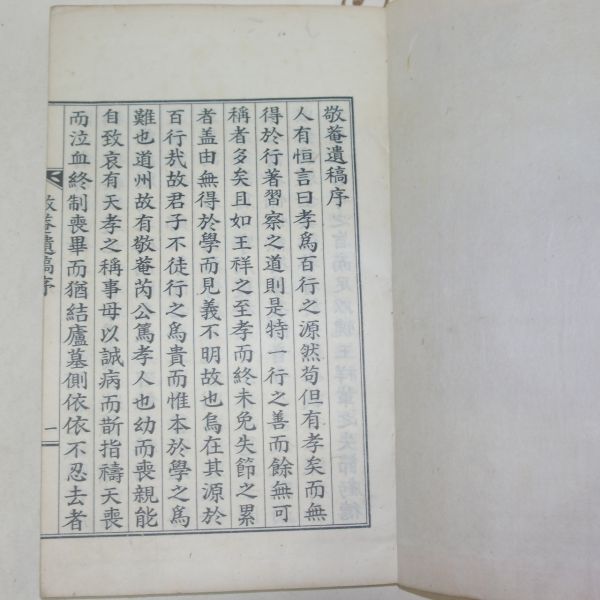 敬菴遺稿序
人有恒言曰孝爲百行之源然苟但有孝矣而無
得於行著習察之道則是特一行之善而餘無可
稱者多矣且如王祥之至孝而終未免失節之累
者盖由無得於學而見義不明故也烏在其源於
百行㢤故君子不徒行之爲貴而惟本於學之爲
難也道州故有敬菴芮公篤孝人也幼而喪親能
自致哀有天孝之稱事母以誠病而斮指禱天喪
而泣血終制喪畢而猶結廬墓側依依不忍去者
敬菴遺稿序
一